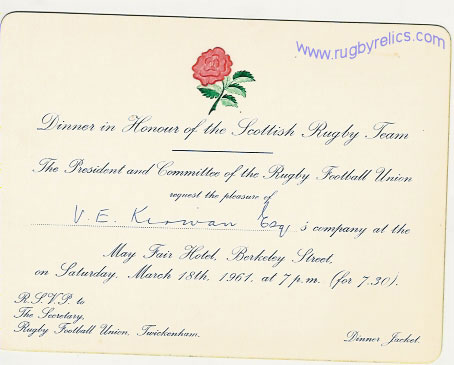 www.rugbyrelics.com
Dinner in Honour of the Scottish Rugby Team
The President and Committee of the Rugby Football Union
request the pleasure of
V. E. Kirwan Esq 's company at the
May Fair Hotel, Berkeley Street,
on Saturday, March 18th, 1961, at 7 p.m. (for 7.30).
R.S.V.P. to
The Secretary,
Rugby Football Union, Twickenham.
Dinner Jacket.